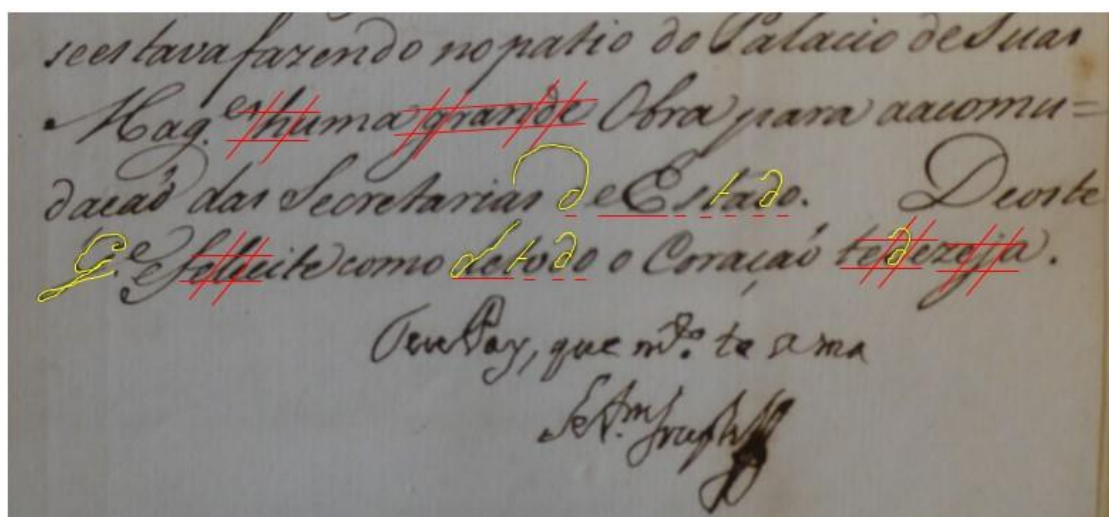 se estava fazendo no patio do Palacio de Suas
Mag.es huma grande Obra para aacomu=
dacaõ das Secretarias de Estado. Deoste
G.e e felecite como de todo o Coraçaõ te dezeja.
Teu Pay, que m.to te ama
Seb.am